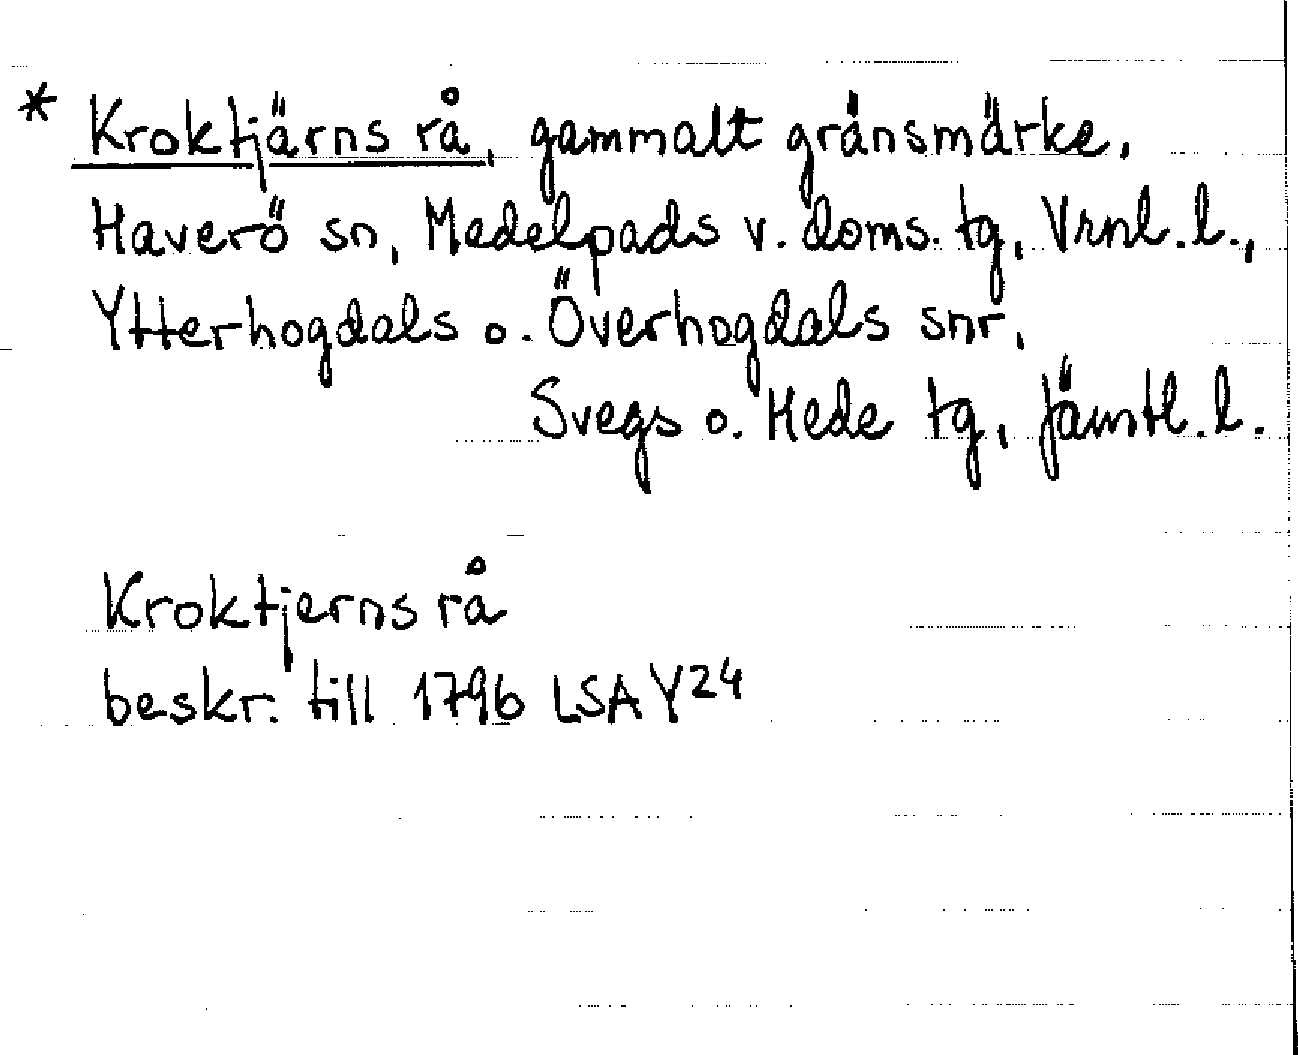 * Kroktjärns rå, gammalt gränsmärke,
Haverö sn, Medelpads v. doms. tg, Vrnl. l.,
Ytterhogdals o. Överhogdals snr,
Svegs o. Hede tg, Jämtl. l.
Kroktjerns rå
beskr. till 1796 LSA Y24